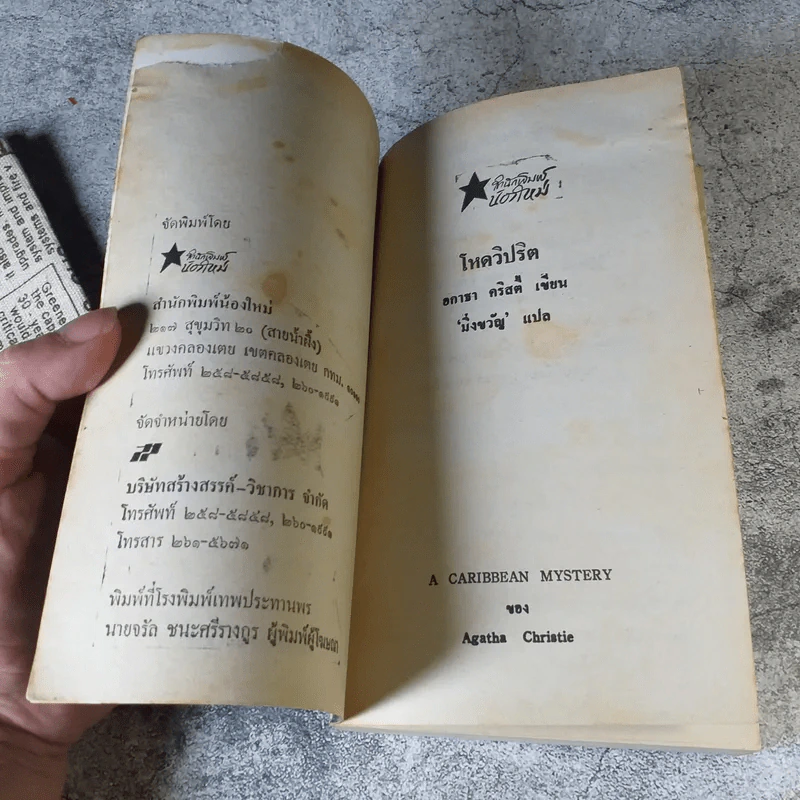 จัดพิมพ์โดย
สำนักพิมพ์
น้องใหม่
สำนักพิมพ์น้องใหม่
๒๑๗ สุขุมวิท ๒๐ (สายน้ำผึ้ง)
แขวงคลองเตย เขตคลองเตย กทม. ๑๐๑๑๐
โทรศัพท์ ๒๕๘-๕๘๕๘, ๒๖๐-๑๙๙๑
จัดจำหน่ายโดย
บริษัทสร้างสรรค์-วิชาการ จำกัด
โทรศัพท์ ๒๕๘-๕๘๕๘, ๒๖๐-๑๙๙๑
โทรสาร ๒๖๑-๕๖๗๑
พิมพ์ที่โรงพิมพ์เทพประทานพร
นายจรัล ชนะศรีรางกูร ผู้พิมพ์ผู้โฆษณา
สำนักพิมพ์
น้องใหม่
โหดวิปริต
อกาธา คริสตี้ เขียน
'มิ่งขวัญ' แปล
A CARIBBEAN MYSTERY
ของ
Agatha Christie
also
upgrades
system and impr
systems and fire v
Greene
the cap
30-ye
would
critica